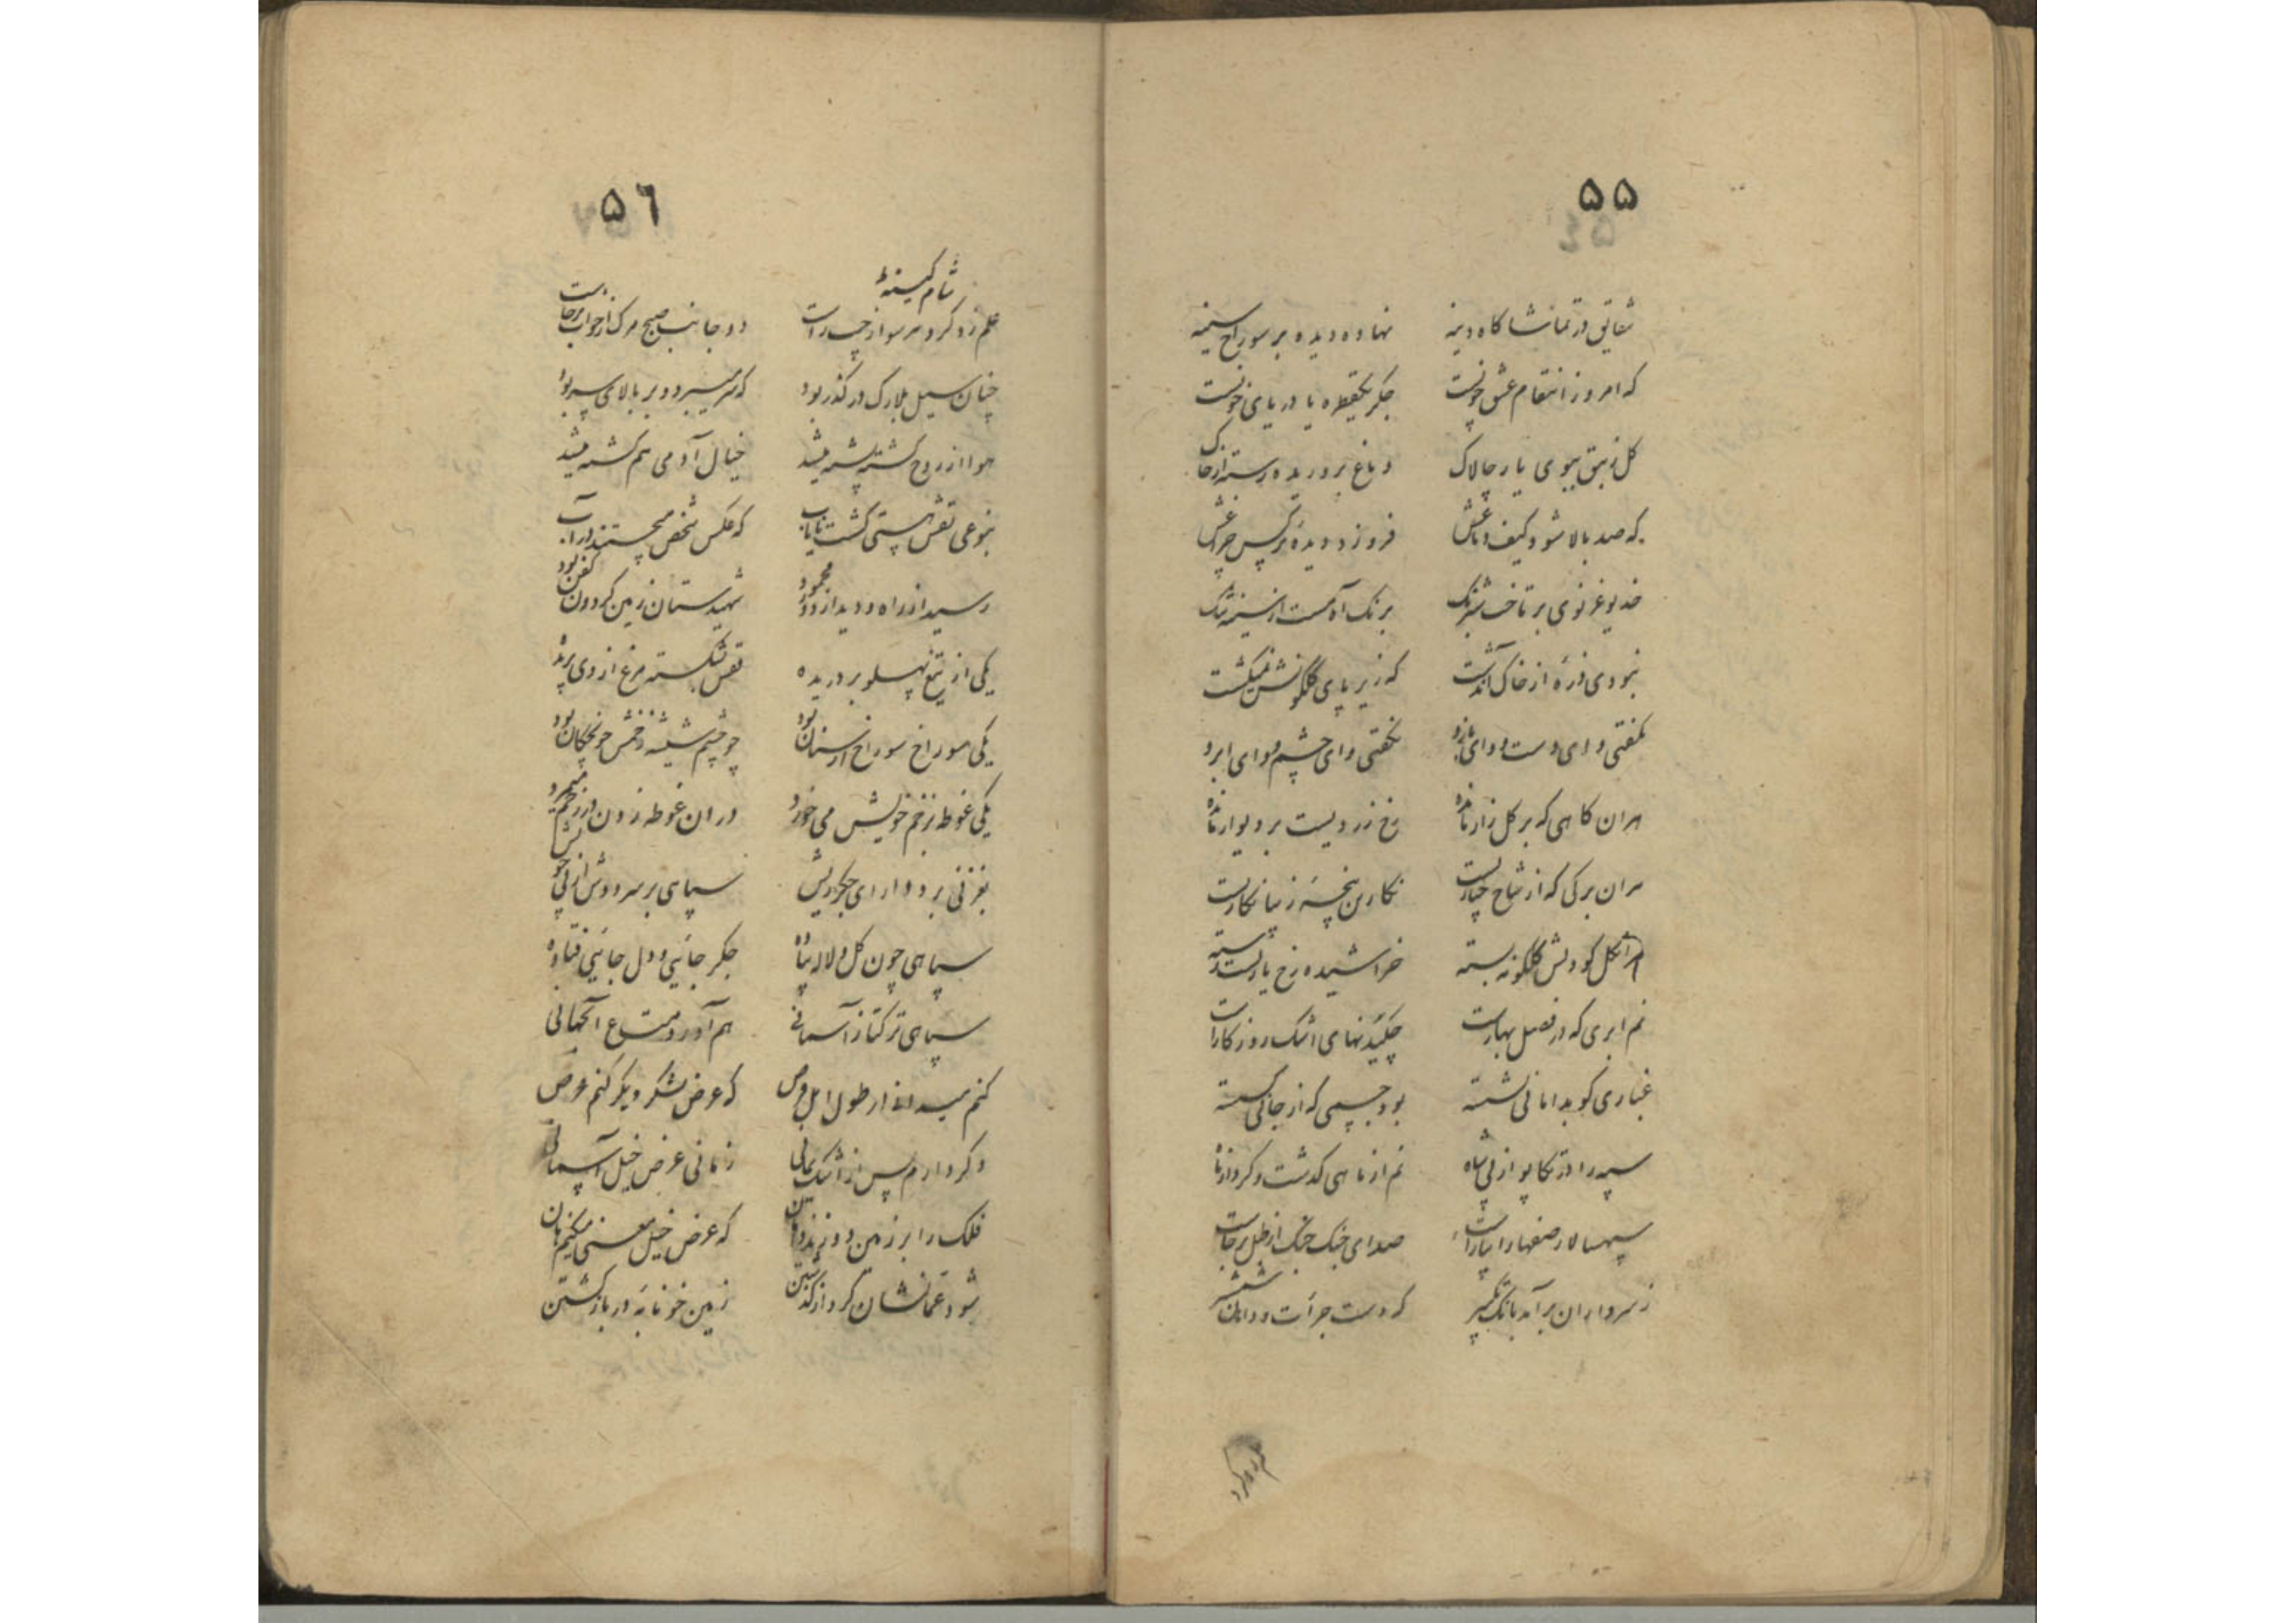 ۵۵
شقایق در تماشا کاه دینه نهاده دیده بر سوراخ سینه
که امروز انتقام عشق خونست جکر یکقطره یا دریای خونست
کل زنبق ببوی یار چالاک دماغ پروریده رسته از خاک
که صد بالا شود کیف دماغش فروزد دیدهٔ نرکس چراغش
خدیو غزنوی بر تاخت شبرنک برنک آه مست از سینه تنک
نبودی ذرهٔ از خاک آندشت که زیر پای گلگونش نمیکشت
نمفتی وای دست ووای بازو نکفتی وای چشم ووای ابرو
هران کاهی که بر کل زار مانده رخ زردیست بر دیوار مانده
هران برکی که از شاخ چنارست نکارین پنجهٔ زیبا نکارست
هر آنکل کو دلش گلگونه بسته خراشیده رخ یار
نم ابری که در فصل بهارست چکیدنهای اشک روزکارست
غباری کو بدامانی نشسته بود جسمی که از جانی کسسته
سپه را در تکاپو از پی شاه نم از ماهی کدشت و کرد از ماه
سپهسالار صفهارا بیاراست صدای جنک جنک از طبل برخاست
ز سرداران برآمد بانک تکبیر که دست جرأت و دامان شمشیر
۵۶
ز شام کینهٔ
علم زد کرد هر سو از چپ و راست دو جانب صبح مرک از خواب برخاست
چنان سیل بلارک در کذر بود که سر میبرد و بر بالای سپر بود
هوا از روح کشته پشته میشد خیال آدمی هم کشته میشد
بنوعی نقش هستی کشت نایاب که عکس شخص میجستند در آب
رسید از راه و دید از دور محمود شهیدستان زمین کردون کفن بود
یکی از تیغ پهلو بر دریده قفس بشکسته مرغ از وی پریده
یکی سوراخ سوراخ از سنان بود چو چشم شیشه زخمش خونچکان بود
یکی غوطه بزخم خویش می خورد در ان غوطه زدن در زخم میمرد
بغزنی برد دارای جکرریش سپاهی بر سر دوش از پی خویش
سپاهی چون کل و لاله پیاده جکر جائی و دل جائی فتاده
سپاهی ترکتاز آسمانی هم آورد متاع آنجهانی
کنم میدانی از طول امل قرض که عرض لشکر دیکر کنم عرض
دکر دارم پس از اشک یمانی زمانی عرض خیل آسمانی
فلک را بر زمین دوزند که عرض خیل معنی میکنم هان
شود عمانشان کرد از کذشتن زمین خونابه در باز کشتن